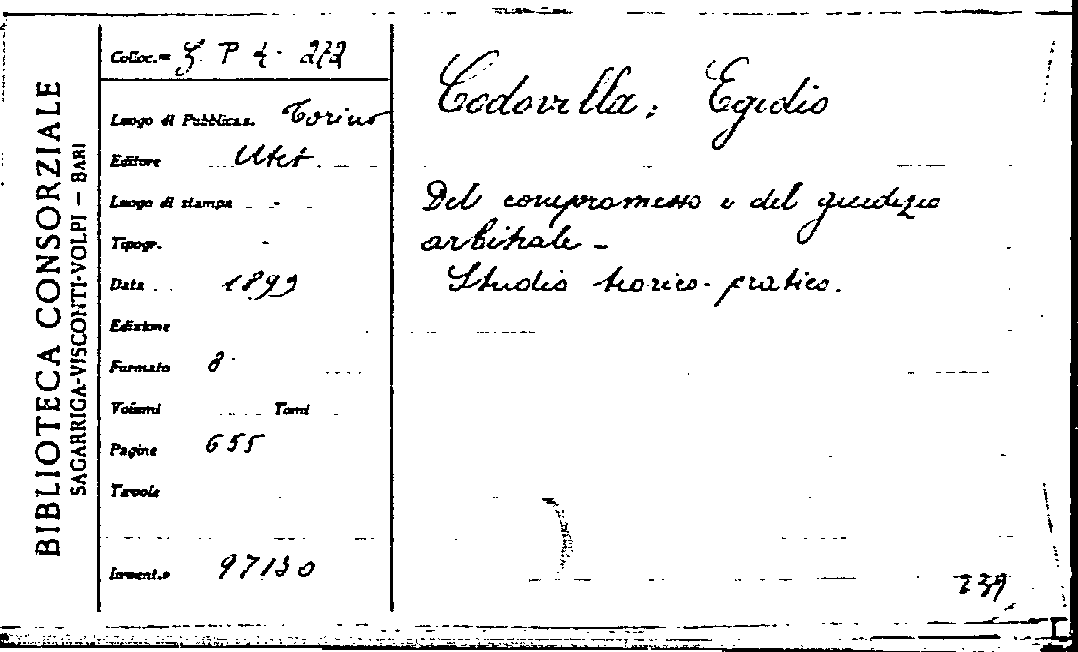 BIBLIOTECA CONSORZIALE
SAGARRIGA-VISCONTI-VOLPI — BARI
Colloc.=
Luogo di Pubblicaz. Torino
Editore Utet.
Luogo di stampa -
Tipogr. -
Data 1899
Edizione
Formato 8°
Volumi Tomi
Pagine 655
Tavole
Invent.o 97130
Codovilla, Egidio
Del compromesso e del giudizio
arbitrale -
Studio teorico-pratico.
239